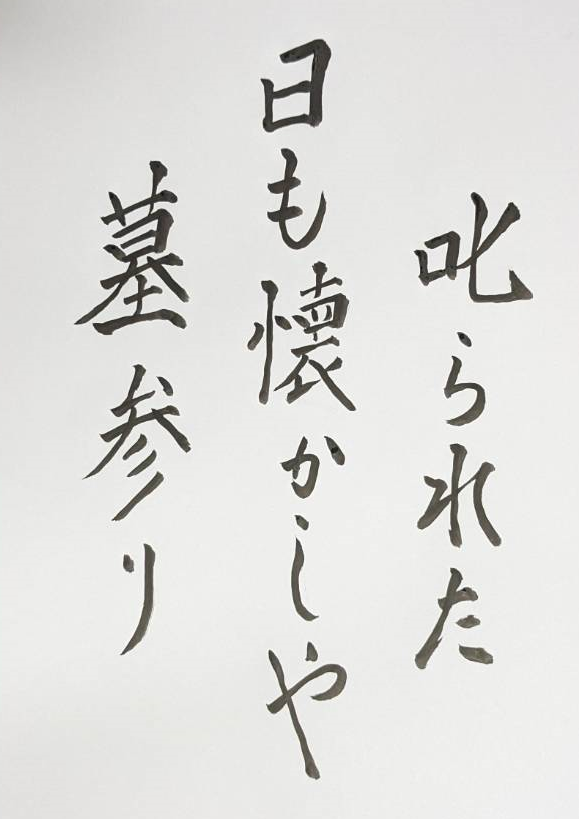 叱られた
日も懐かしや
墓参り